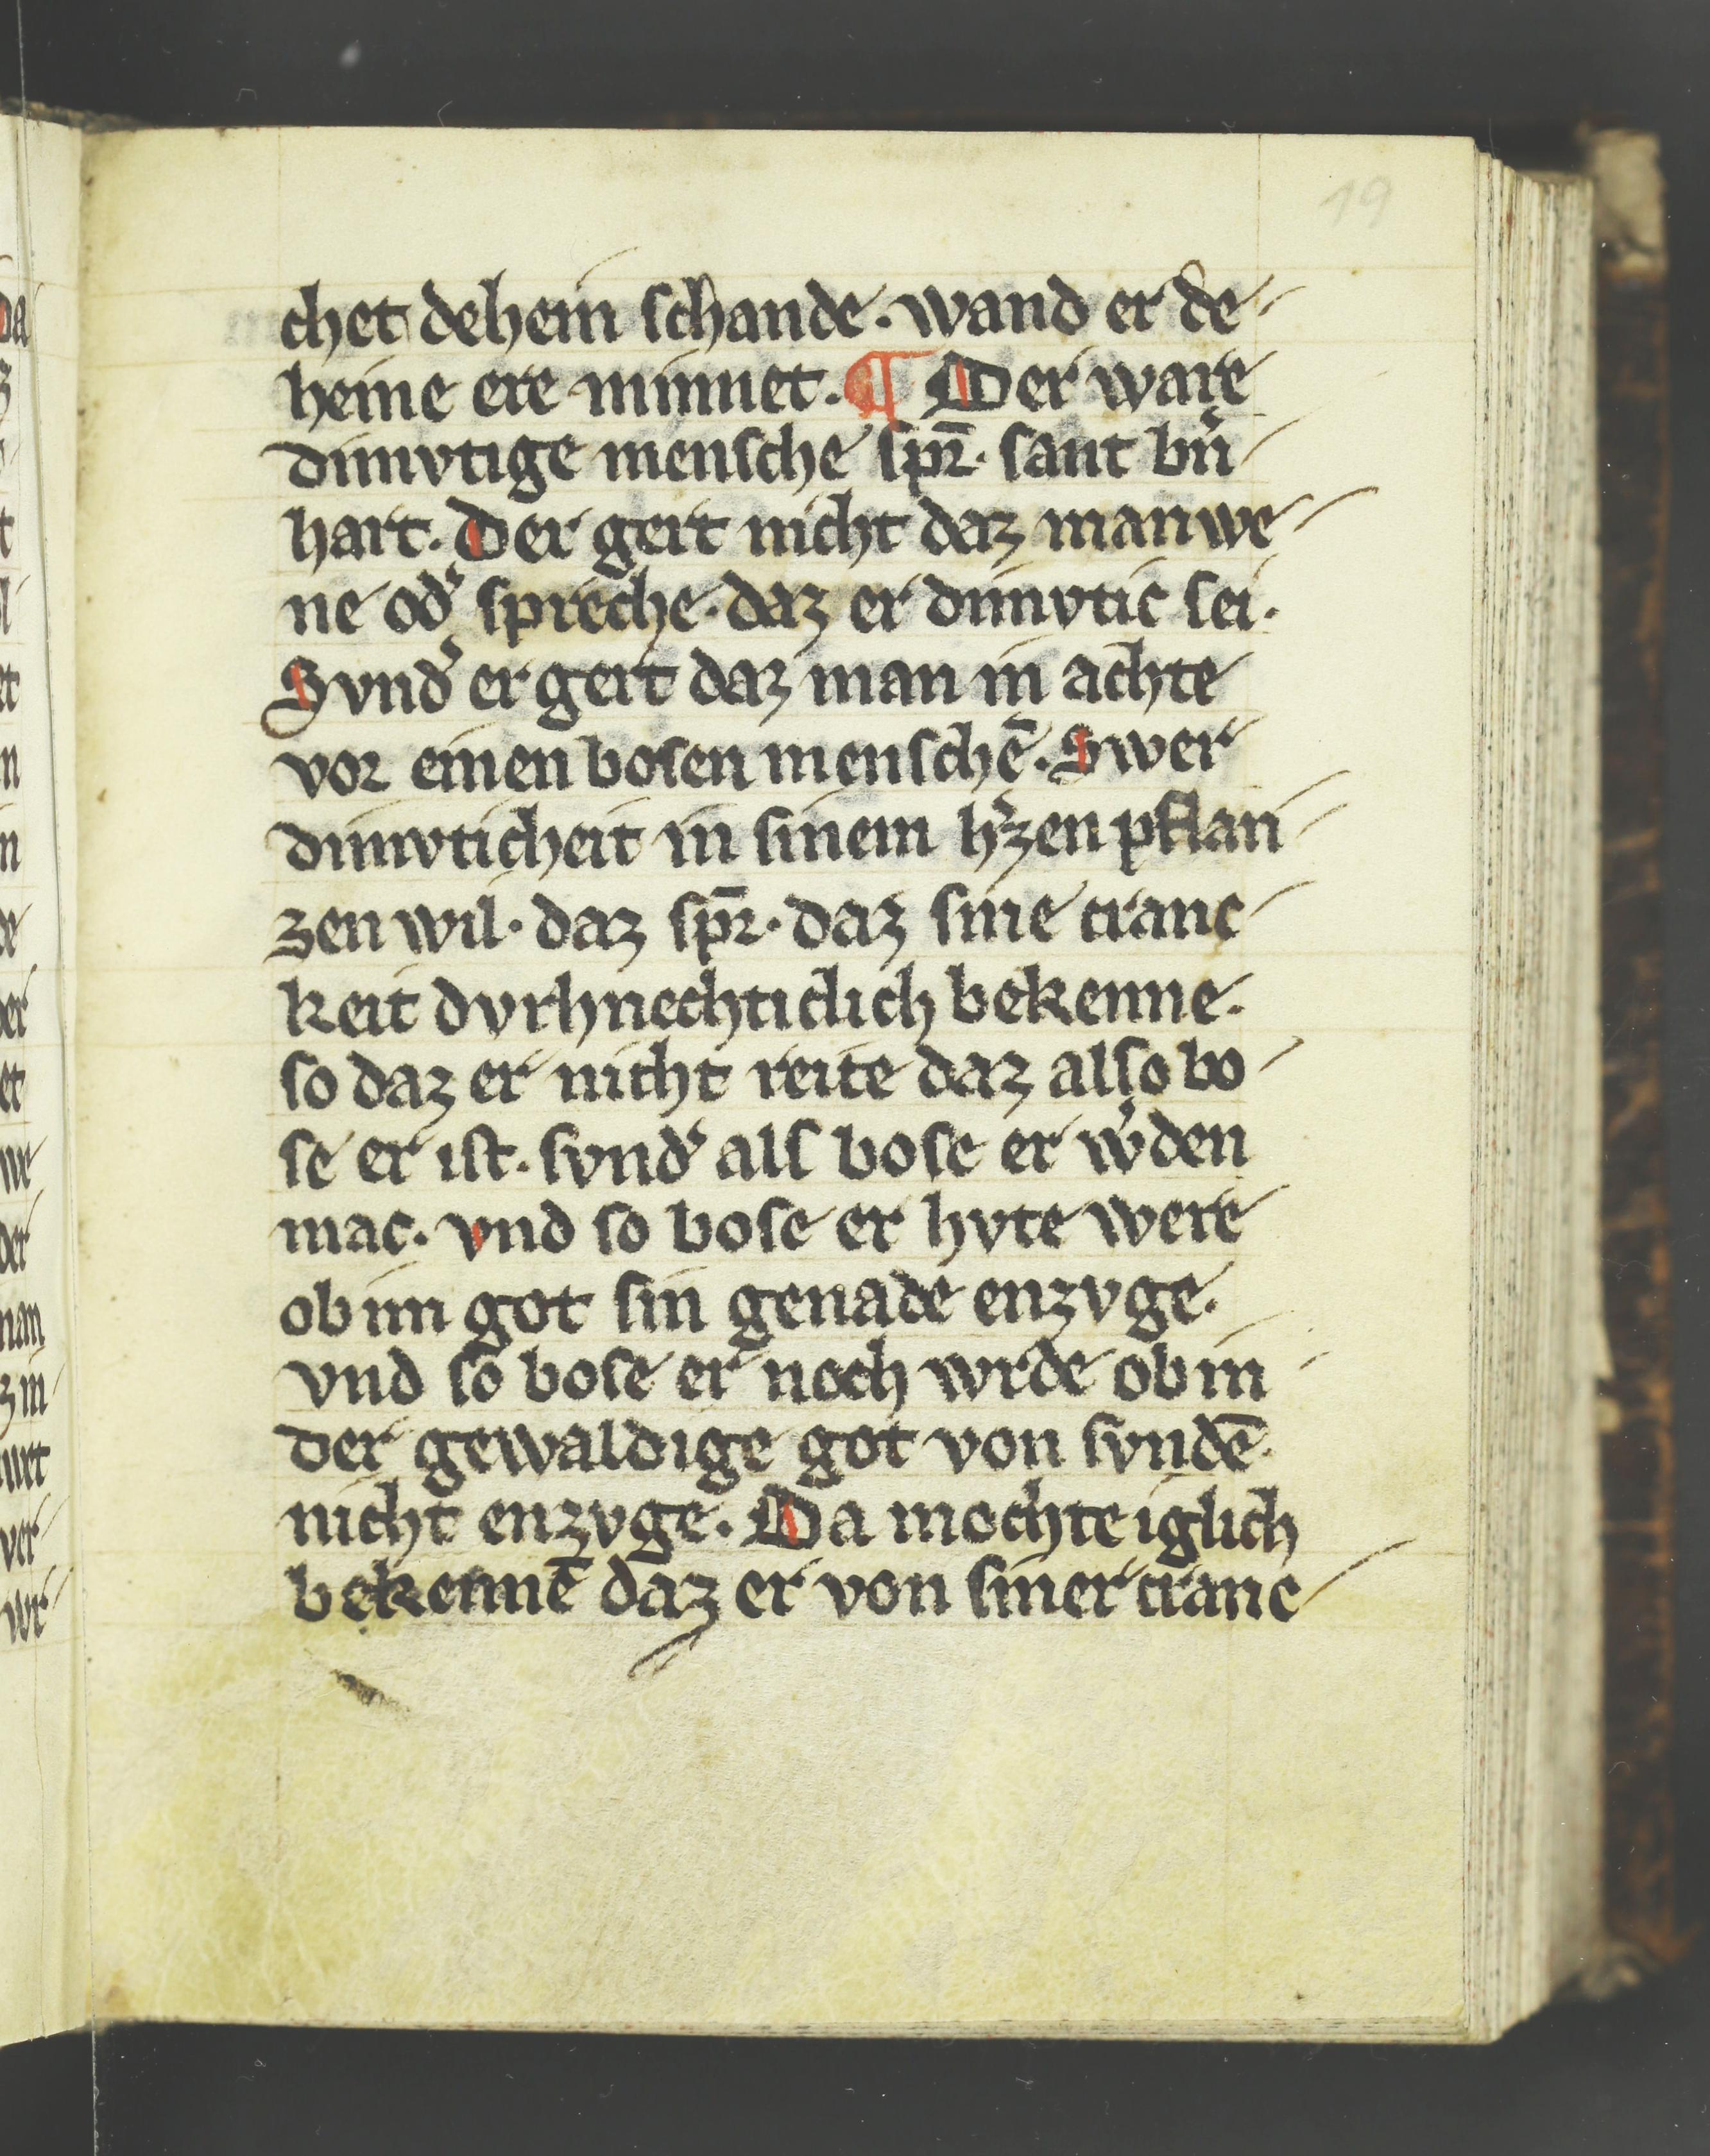 19
chet dehein schande. wand er de-
heine ere minnet. ¶ Der ware
dimvtige mensche spr̄. sant bn̓-
hart. Der gert nicht daz man we-
ne od̓ spreche. daz er dimvtic sei.
Svnd̓ er gert daz man in achte
vor einen bosen menschē. Swer
dimvticheit in sinem h̓zen pflan-
zen wil. daz spr̄. daz sine cranc-
keit dvrhnechticlich bekenne.
so daz er nicht reite daz also bo-
se er ist. svnd̓ als bose er w̓den
mac. vnd so bose er hvte were
ob im got sin genade enzvge.
vnd so bose er noch wrde ob in
der gewaldige got von svndē
nicht enzvge. Da mochte iglich
bekennē daz er von siner cranc-